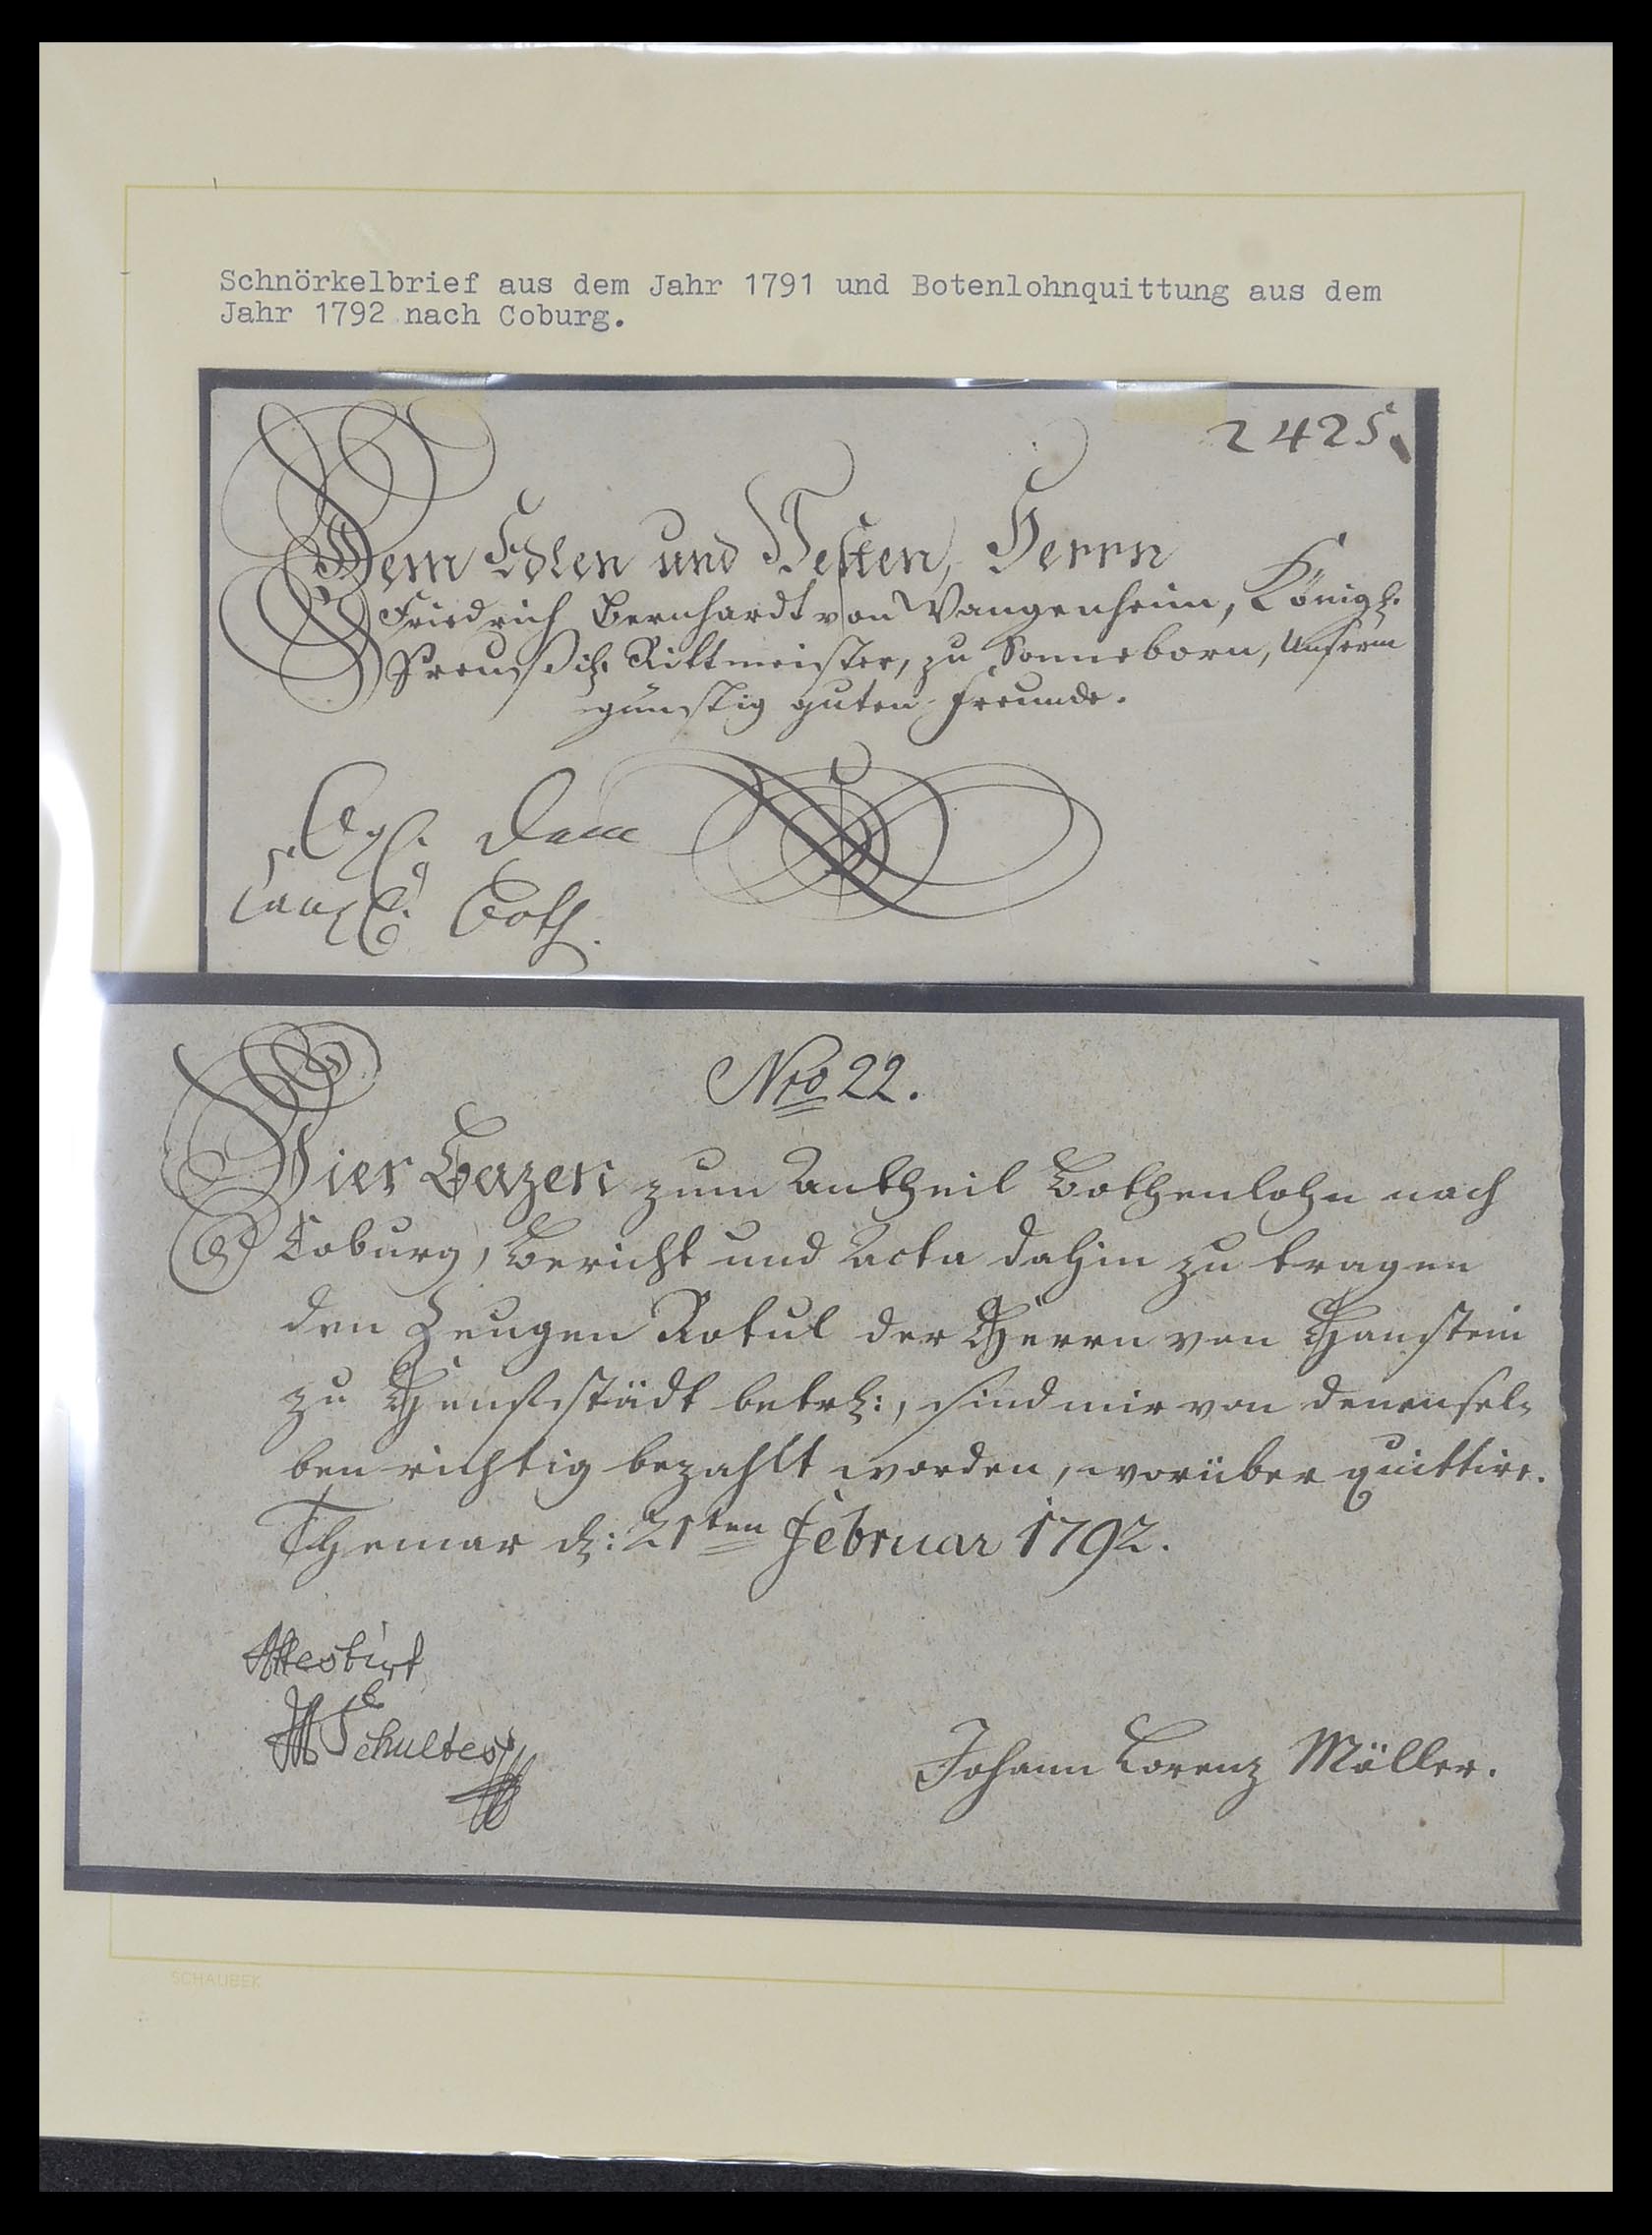 Schnörkelbrief aus dem Jahr 1791 und Botenlohnquittung aus dem
Jahr 1792 nach Coburg.
2425.
Dem Edlen und Vesten, Herrn
Friedrich Bernhardt von Wangenheim, Königl.
Preußisch. Rittmeister, zu Sonneborn, Unserm
günstig guten Freunde.
dem
Canzl. Both.
Nro 22.
Vier Bazen zum Antheil Bothenlohn nach
Coburg, Bericht und Acta dahin zu tragen
den Zeugen Rotul der Herrn von Hanstein
zu Henfstädt betrl:, sind mir von denensel-
ben richtig bezahlt worden, worüber quittire.
Themar d: 21ten Februar 1792.
Attestirt
Schultes
Johann Lorenz Möller.
SCHAUBEK